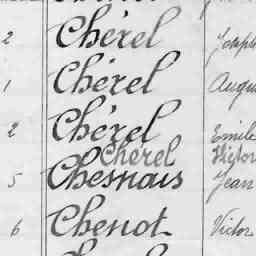 2 Chérel Joseph
1 Chérel Augu
2 Chérel Emile
Chérel Victor
5 Chesnais Jean
6 Chenot Victor